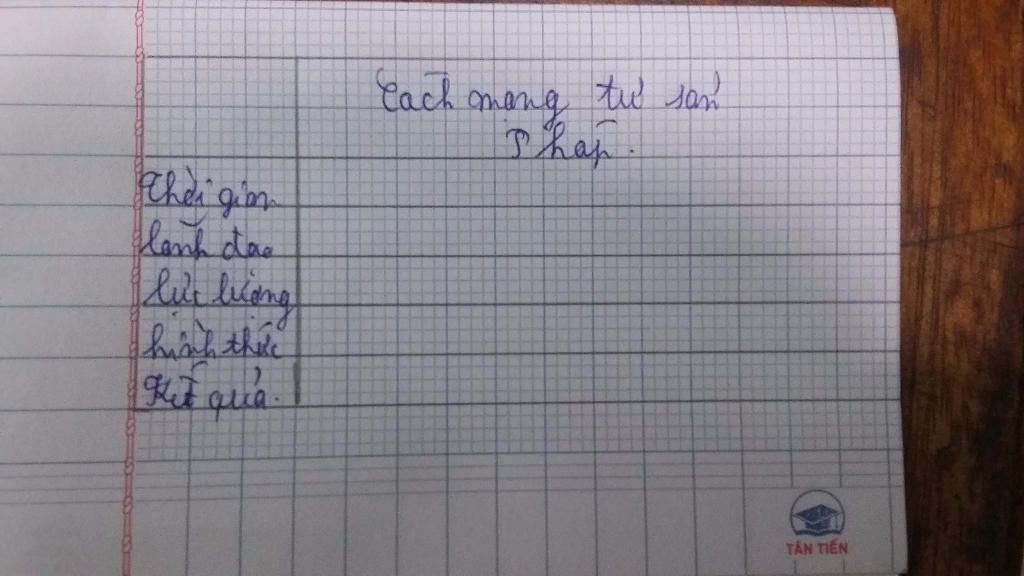 Cách mạng tư sản
Pháp.
Thời gian
lãnh đạo
lực lượng
hình thức
Kết quả.
TÂN TIẾN